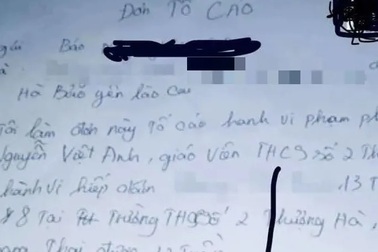 Đơn Tố Cáo
Báo
Hà Bảo yên Lào Cai
Tôi làm đơn này Tố cáo hành vi phạm ph
Nguyễn Việt Anh, giáo viên THCS số 2 Th
hành vi hiếp dâm 13 T
8 Tại Trường THCS số 2 Thượng Hà,